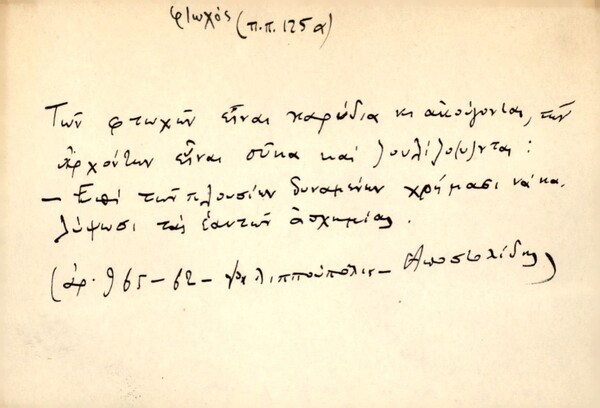 φτωχός (π.π. 125α)
Τῶν φτωχῶν εἶναι καρύδια κι ἀκούγονται, τῶν
ἀρχόντων εἶναι σῦκα καὶ ζουλίζο(υ)νται:
– Ἐπὶ τῶν πλουσίων δυναμένων χρήμασι νὰ κα-
λύψωσι τὰς ἑαυτῶν ἀσχημίας.
(ἀρ. 965 – 62 – Φιλιππούπολις – Ἀποστολίδης)